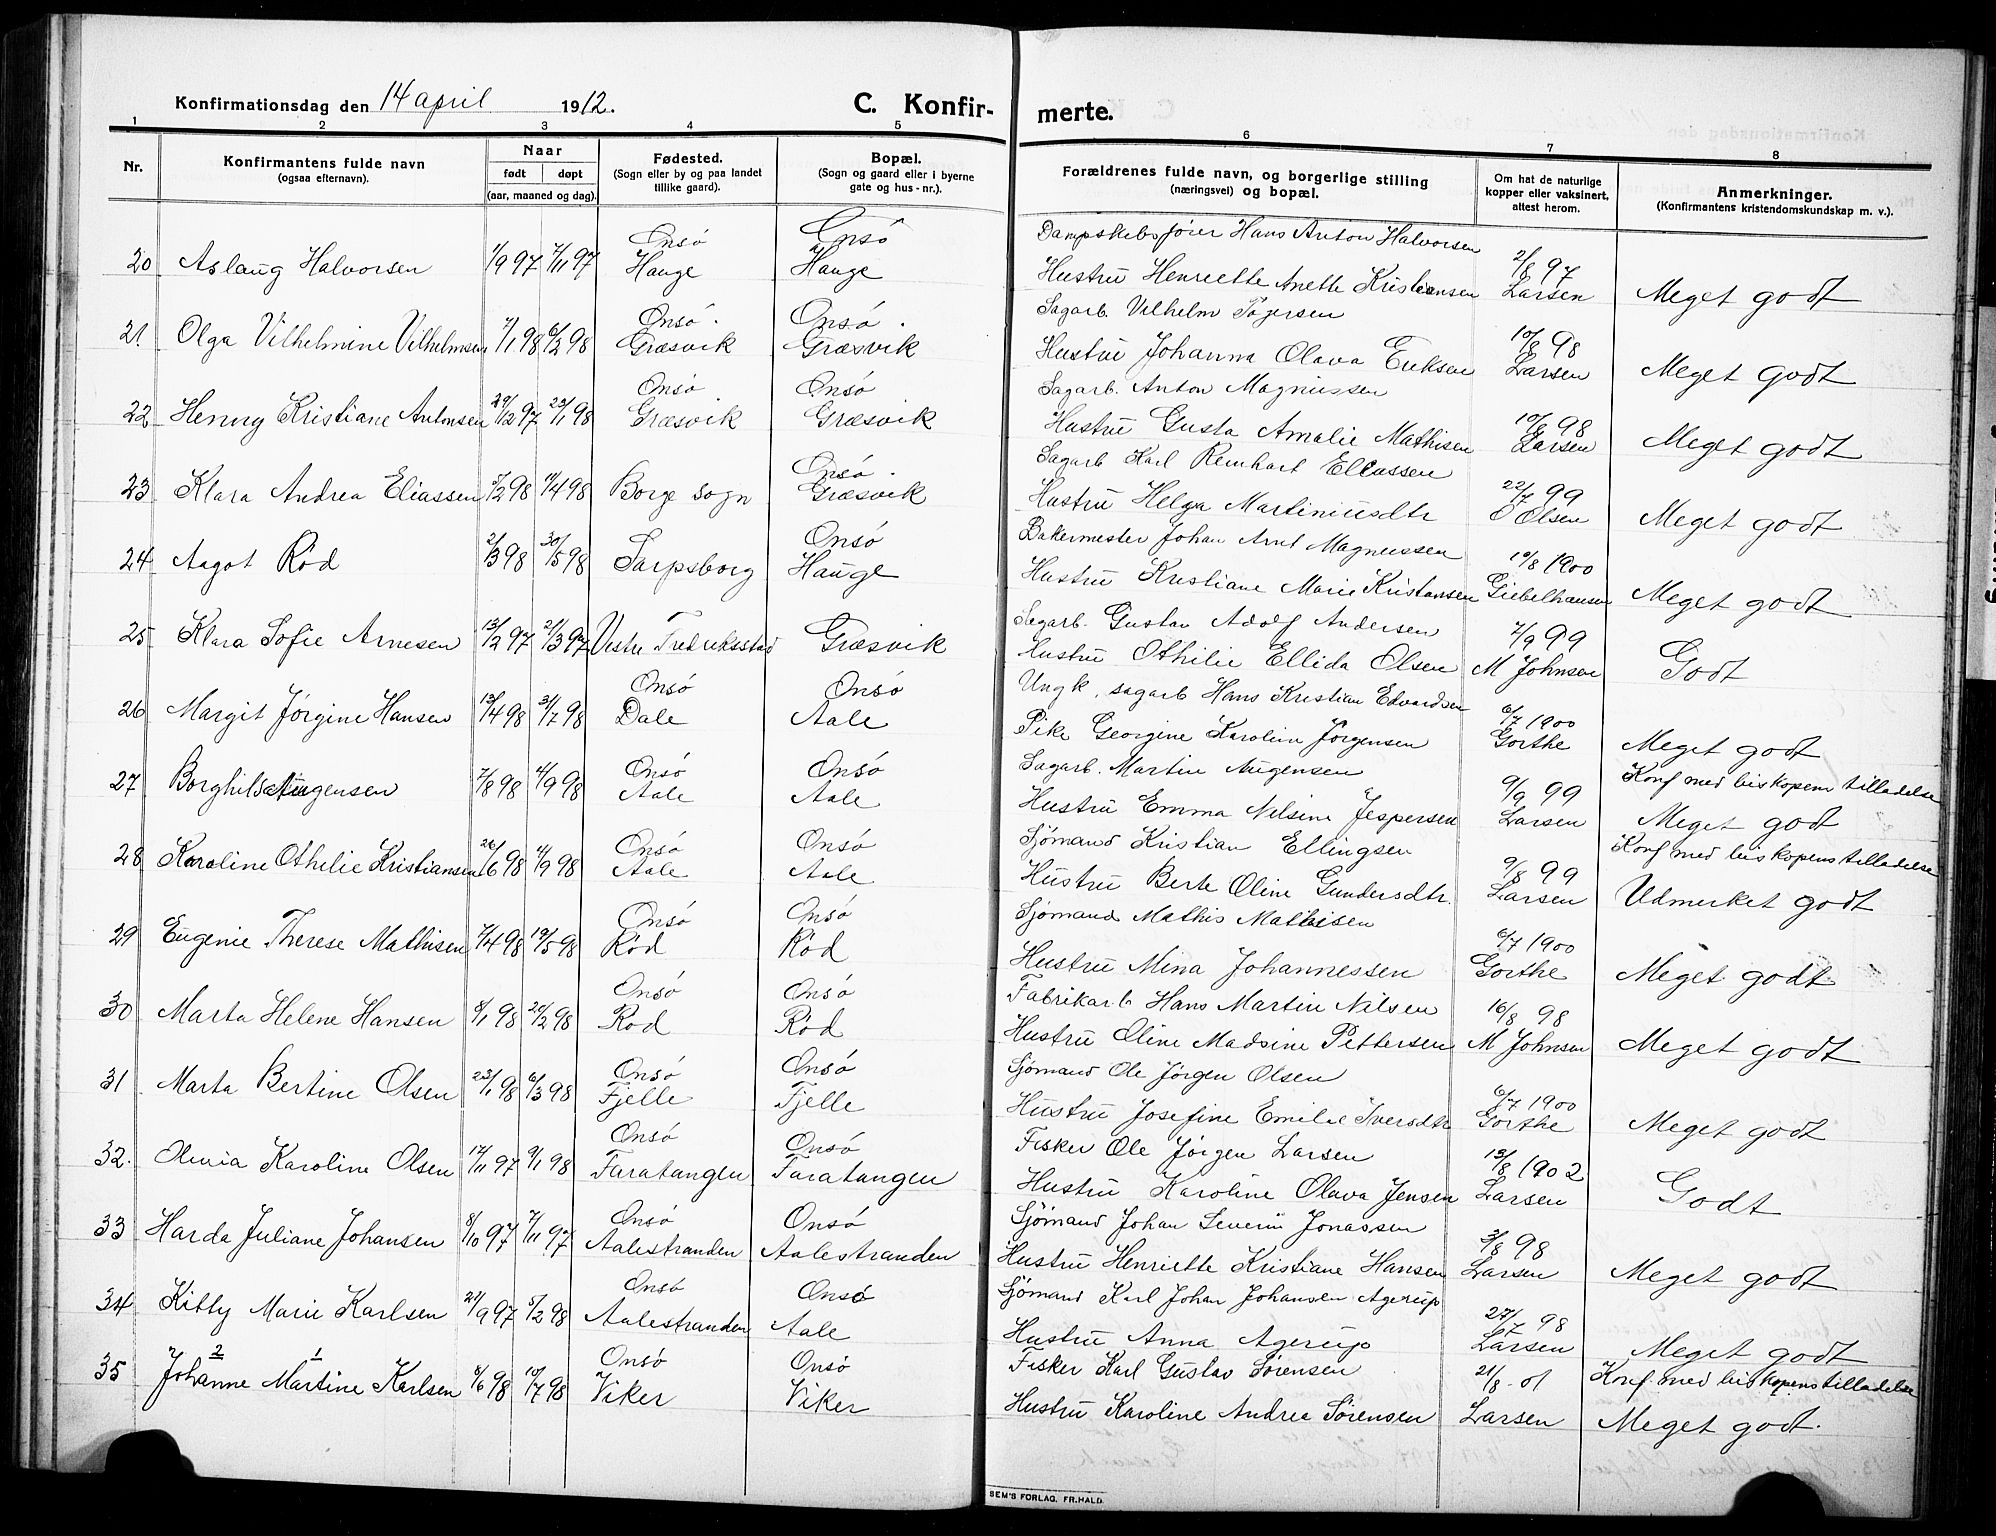 Konfirmationsdag den 14 april 1912.
C. Konfir-
merte.
1 2 3 4 5 6 7 8
Nr.
Konfirmantens fulde navn
(ogsaa efternavn).
Naar
født døpt
(aar, maaned og dag).
Fødested.
(Sogn eller by og paa landet
tillike gaard).
Bopæl.
(Sogn og gaard eller i byerne
gate og hus-nr.).
Forældrenes fulde navn, og borgerlige stilling
(næringsvei) og bopæl.
Om hat de naturlige
kopper eller vaksinert,
attest herom.
Anmerkninger.
(Konfirmantens kristendomskundskap m. v.).
Onsö Onsö Dampskibsfører Hans Anton Halvorsen 2/8 97
20 Aslaug Halvorsen 1/9 97 7/11 97 Hauge Hauge Hustru Henriette Anette Kristiansen Larsen Meget godt
Onsö. Onsö. Sagarb. Vilhelm Tøgersen 10/8 98
21. Olga Vilhelmine Vilhelmsen 7/1 98 6/2 98 Græsvik Græsvik Hustru Johanna Olava Eriksen Larsen Meget godt
Onsö Onsö Sagarb. Anton Magnussen 10/8 98
22 Henny Kristiane Antonsen 29/12 97 23/1 98 Græsvik Græsvik Hustru Gusta Amalie Mathisen Larsen Meget godt
Onsö. Sagarb Karl Reinhart Eliassen 22/7 99
23 Klara Andrea Eliassen 3/2 98 11/4 98 Borge sogn Græsvik Hustru Helga Martiniusdtr O Olsen Meget godt
Onsö Bakermester Johan Arnt Magnussen 10/8 1900
24 Aagot Röd 2/3 98 30/5 98 Sarpsborg Hauge Hustru Kristiane Marie Kristansen Giebelhausen Meget godt
Sagarb. Gustav Adolf Andersen 7/9 99
25 Klara Sofie Arnesen 13/2 97 21/3 97 Vestre Fredriksstad Græsvik Hustru Othilie Ellida Olsen M Johnsen Godt
Onsö Onsö Ungk. sagarb Hans Kristian Edvardsen 6/7 1900
26 Margit Jørgine Hansen 13/4 98 31/7 98 Dale Aale Pike Georgine Karoline Jørgensen Gorthe Meget godt
Onsö Onsö Sagarb. Martin Augensen 9/9 99 Konf med biskopens tilladelse
27 Borghild Augensen 7/8 98 4/9 98 Aale Aale Hustru Emma Nilsine Jespersen Larsen Meget godt
Onsö Onsö Sjömand Kristian Ellingsen 9/8 99 Konf med biskopens tilladelse
28 Karoline Othilie Kristiansen 26/6 98 4/9 98 Aale Aale Hustru Berte Oline Gundersdtr. Larsen Udmerket godt
Onsö Onsö Sjömand Mathis Mathisen 6/7 1900
29 Eugenie Therese Mathisen 7/4 98 19/5 98 Röd Röd Hustru Mina Johannessen Gorthe Meget godt
Onsö Onsö Fabrikarb Hans Martin Nilsen 16/8 98
30 Marta Helene Hansen 8/1 98 20/2 98 Rod Röd Hustru Oline Madsine Pettersen M Johnsen Meget godt
Onsö Onsö Sjömand Ole Jørgen Olsen 6/7 1900
31 Marta Bertine Olsen 23/1 98 6/3 98 Fjelle Fjelle Hustru Josefine Emilie Iversdtr Gorthe Meget godt
Onsö Onsö Fisker Ole Jørgen Larsen 13/8 1902
32. Olivia Karoline Olsen 17/11 97 9/1 98 Faratangen Faratangen Hustru Karoline Olava Jensen Larsen Godt
Onsö Onsö Sjömand Johan Severin Jonassen 3/8 98
33 Harda Juliane Johansen 8/10 97 7/11 97 Aalestranden Aalestranden Hustru Henriette Kristiane Hansen Larsen Meget godt
Onsö Onsö Sjömand Karl Johan Johansen Agerup 27/7 98
34 Kitty Marie Karlsen 21/9 97 5/2 98 Aalestranden Aale Hustru Anna Agerup Larsen Meget godt
2 1 Onsö Onsö Fisker Karl Gustav Sørensen 21/8 01 Konf med biskopens tilladelse
35 Johanne Martine Karlsen 8/6 98 10/7 98 Viker Viker Hustru Karoline Andrea Sørensen Larsen Meget godt.
SEM'S FORLAG, FR.HALD.